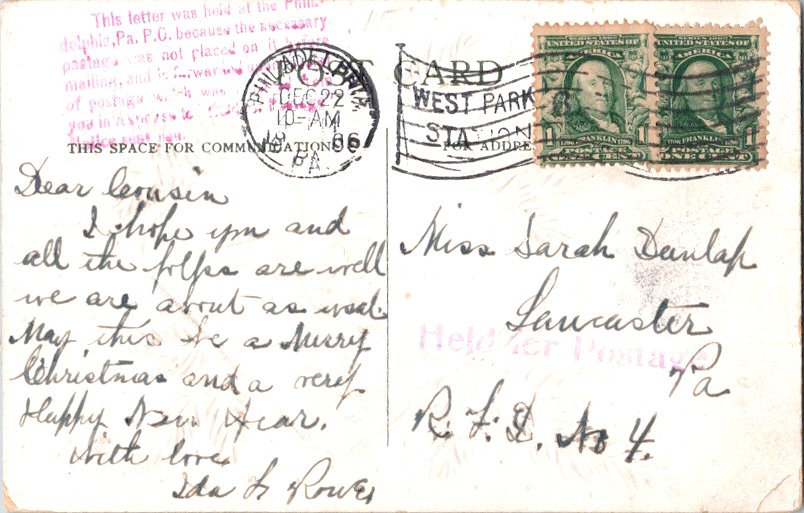 This letter was held at the Phila-
delphia, Pa. P.O. because the necessary
postage was not placed on it before
mailing, and is forwarded
of postage which was
you in response to
Notice sent you.
POST CARD
PHILADELPHIA,
DEC 22
10-AM
PA.
WEST PARK
STATION
SERIES 1902
UNITED STATES OF AMERICA
1 FRANKLIN 1
POSTAGE
ONE CENT
SERIES 1902
UNITED STATES OF AMERICA
1 FRANKLIN 1
POSTAGE
ONE CENT
THIS SPACE FOR COMMUNICATIONS
FOR ADDRE
Dear Cousin
I hope you and
all the folks are well
we are about as usal
May this be a Merry
Christmas and a very
Happy New Year.
With love
Ida
Miss Sarah Dunlap
Lancaster
Held for Postage
Pa
R. F. D. No 4.